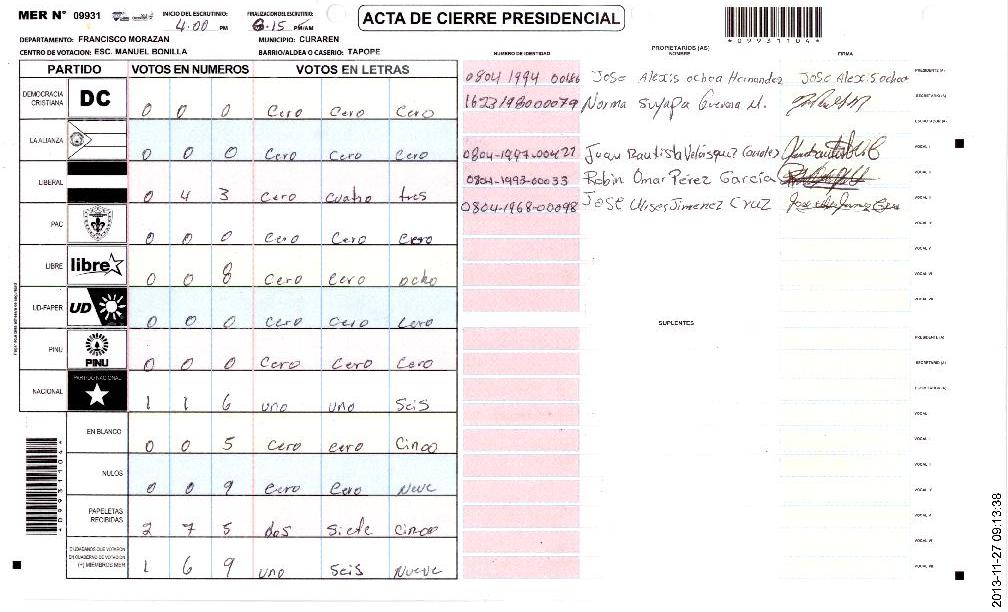 MER N° 09931
INICIO DEL ESCRUTINIO: 4:00 PM
FINALIZACION DEL ESCRUTINIO: 6:15 PM/AM
ACTA DE CIERRE PRESIDENCIAL
*09931104*
DEPARTAMENTO: FRANCISCO MORAZAN
MUNICIPIO: CURAREN
CENTRO DE VOTACION: ESC. MANUEL BONILLA
BARRIO/ALDEA O CASERIO: TAPOPE
PARTIDO VOTOS EN NUMEROS VOTOS EN LETRAS
DEMOCRACIA CRISTIANA DC 0 0 0 Cero Cero Cero
LA ALIANZA 0 0 0 Cero Cero Cero
LIBERAL 0 4 3 Cero Cuatro tres
PAC 0 0 0 Cero Cero Cero
LIBRE libre 0 0 8 Cero Cero ocho
UD-FAPER UD 0 0 0 Cero Cero Cero
PINU PINU 0 0 0 Cero Cero Cero
NACIONAL PARTIDO NACIONAL 1 1 6 uno uno Seis
EN BLANCO 0 0 5 Cero cero Cinco
NULOS 0 0 9 Cero Cero Nueve
PAPELETAS RECIBIDAS 2 7 5 dos Siete Cinco
CIUDADANOS QUE VOTARON
EN CUADERNO DE VOTACION
(+) MIEMBROS MER 1 6 9 uno Seis Nueve
*09931104*
NUMERO DE IDENTIDAD
PROPIETARIOS (AS)
NOMBRE
FIRMA
0804 1994 00186 Jose Alexis ochoa Hernandez Jose Alexis ochoa PRESIDENTE (A)
Norma Suyapa M. SECRETARIO (A)
ESCRUTADOR (A)
0804-1997-00427 Juan Bautista Velásquez VOCAL I
0804-1993-00033 Robin Omar Pérez García VOCAL II
0804-1968-00098 José Ulises Jimenez Cruz VOCAL III
VOCAL IV
VOCAL V
VOCAL VI
VOCAL VII
SUPLENTES
PRESIDENTE (A)
SECRETARIO (A)
ESCRUTADOR (A)
VOCAL
VOCAL
VOCAL
VOCAL
VOCAL
VOCAL VI
VOCAL VII
2013-11-27 09:13:38